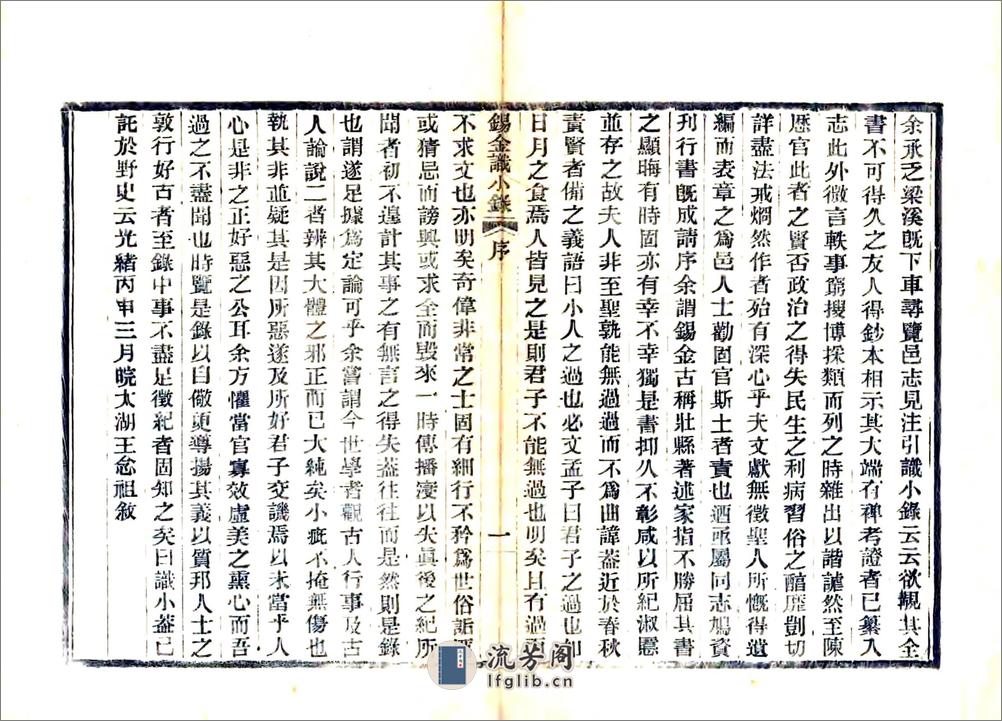 余承乏梁溪旣下車尋覽邑志見注引識小錄云云欲觀其全
書不可得久之友人得鈔本相示其大端有裨考證者已纂入
志此外微言軼事窮搜博採類而列之時雜出以諧謔然至陳
歷官此者之賢否政治之得失民生之利病習俗之醕靡剴切
詳盡法戒烱然作者殆有深心乎夫文獻無徵聖人所慨得遺
編而表章之爲邑人士勸固官斯土者責也迺亟屬同志鳩資
刊行書旣成請序余謂錫金古稱壯縣著述家指不勝屈其書
之顯晦有時固亦有幸不幸獨是書抑久不彰咸以所紀淑慝
並存之故夫人非至聖孰能無過過而不爲曲諱葢近於春秋
責賢者備之義語曰小人之過也必文孟子曰君子之過也
日月之食焉人皆見之是則君子不能無過也明矣且有過而
錫金識小錄 序 一
不求文也亦明矣奇偉非常之士固有細行不矜爲世俗詬
或猜忌而謗興或求全而毀來一時傳播淩以失眞後之紀所
聞者初不遑計其事之有無言之得失葢往往而是然則是錄
也謂遂足據爲定論可乎余嘗謂今世學者觀古人行事及古
人論說二者辨其大體之邪正而已大純矣小疵不掩無傷也
執其非並疑其是因所惡遂及所好君子交譏焉以未當乎人
心是非之正好惡之公耳余方懼當官寡效虛美之熏心而吾
過之不盡聞也時覽是錄以自儆更導揚其義以質邦人士之
敦行好古者至錄中事不盡足徵紀者固知之矣曰識小葢已
託於野史云光緒丙申三月皖太湖王念祖敘
流芳阁
lfglib.cn